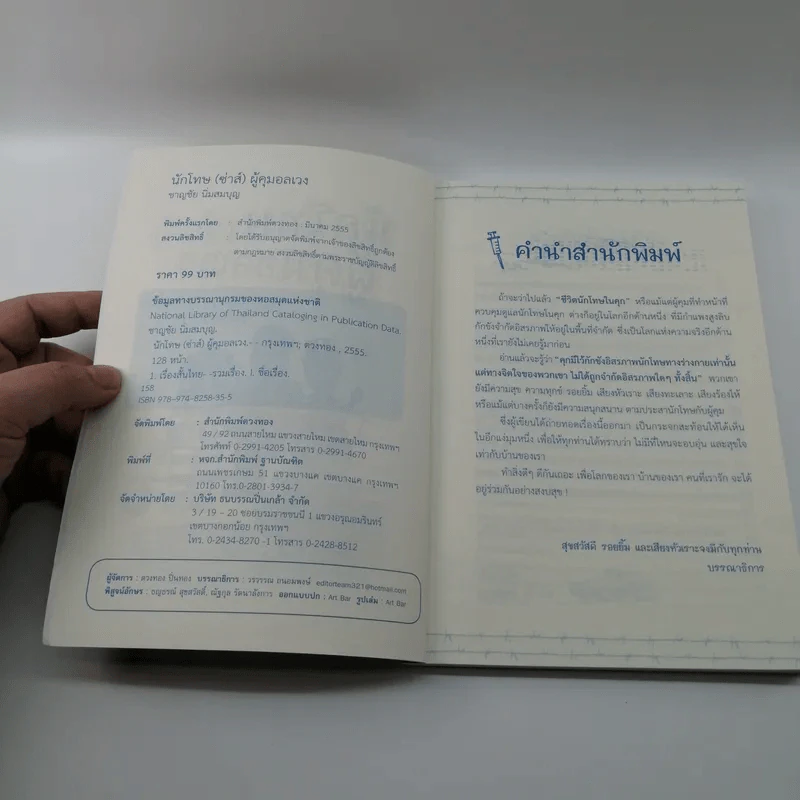 นักโทษ (ซ่าส์) ผู้คุมอลเวง
ชาญชัย นิ่มสมบุญ
พิมพ์ครั้งแรกโดย : สำนักพิมพ์ดวงทอง : มีนาคม 2555
สงวนลิขสิทธิ์ : โดยได้รับอนุญาตจัดพิมพ์จากเจ้าของลิขสิทธิ์ถูกต้อง
ตามกฎหมาย สงวนลิขสิทธิ์ตามพระราชบัญญัติลิขสิทธิ์
ราคา 99 บาท
ข้อมูลทางบรรณานุกรมของหอสมุดแห่งชาติ
National Library of Thailand Cataloging in Publication Data.
ชาญชัย นิ่มสมบุญ.
นักโทษ (ซ่าส์) ผู้คุมอลเวง.- - กรุงเทพฯ: ดวงทอง , 2555.
128 หน้า.
1. เรื่องสั้นไทย- -รวมเรื่อง. I. ชื่อเรื่อง.
158
ISBN 978-974-8258-35-5
จัดพิมพ์โดย : สำนักพิมพ์ดวงทอง
49/92 ถนนสายไหม แขวงสายไหม เขตสายไหม กรุงเทพฯ
โทรศัพท์ 0-2991-4205 โทรสาร 0-2991-4670
พิมพ์ที่ : หจก.สำนักพิมพ์ ฐานบัณฑิต
ถนนเพชรเกษม 51 แขวงบางแค เขตบางแค กรุงเทพฯ
10160 โทร.0-2801-3934-7
จัดจำหน่ายโดย : บริษัท ธนบรรณปิ่นเกล้า จำกัด
3 / 19 – 20 ซอยบรมราชชนนี 1 แขวงอรุณอมรินทร์
เขตบางกอกน้อย กรุงเทพฯ
โทร. 0-2434-8270 -1 โทรสาร 0-2428-8512
ผู้จัดการ : ดวงทอง ปิ่นทอง บรรณาธิการ : วรวรรณ ถนอมพงษ์ editorteam321@hotmail.com
พิสูจน์อักษร : ธญธรณ์ สุขสวัสดิ์, ณัฐกุล รัตนาลังการ ออกแบบปก : Art Bar รูปเล่ม : Art Bar
คำนำสำนักพิมพ์
ถ้าจะว่าไปแล้ว "ชีวิตนักโทษในคุก" หรือแม้แต่ผู้คุมที่ทำหน้าที่
ควบคุมดูแลนักโทษในคุก ต่างก็อยู่ในโลกอีกด้านหนึ่ง ที่มีกำแพงสูงลิบ
กักขังจำกัดอิสรภาพให้อยู่ในพื้นที่จำกัด ซึ่งเป็นโลกแห่งความจริงอีกด้าน
หนึ่งที่เรายังไม่เคยรู้มาก่อน
อ่านแล้วจะรู้ว่า "คุกมีไว้กักขังอิสรภาพนักโทษทางร่างกายเท่านั้น
แต่ทางจิตใจของพวกเขา ไม่ได้ถูกจำกัดอิสรภาพใดๆ ทั้งสิ้น" พวกเขา
ยังมีความสุข ความทุกข์ รอยยิ้ม เสียงหัวเราะ เสียงทะเลาะ เสียงร้องไห้
หรือแม้แต่บางครั้งก็ยังมีความสนุกสนาน ตามประสานักโทษกับผู้คุม
ซึ่งผู้เขียนได้ถ่ายทอดเรื่องนี้ออกมา เป็นกระจกสะท้อนให้ได้เห็น
ในอีกแง่มุมหนึ่ง เพื่อให้ทุกท่านได้ทราบว่า ไม่มีที่ไหนจะอบอุ่น และสุขใจ
เท่ากับบ้านของเรา
ทำสิ่งดีๆ ดีกันเถอะ เพื่อโลกของเรา บ้านของเรา คนที่เรารัก จะได้
อยู่ร่วมกันอย่างสงบสุข !
สุขสวัสดี รอยยิ้ม และเสียงหัวเราะจงมีกับทุกท่าน
บรรณาธิการ